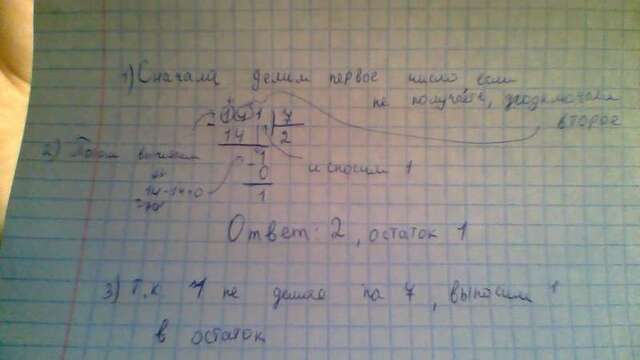 1) Сначала делим первое число если
не получается, подключаем
второе
141 | 7
14 | 2
2) Потом вычитаем
- 1
0
и сносим 1
14-14=0
1
Ответ: 2, остаток 1
3) Т.к 1 не делится на 7, выносим 1
в остаток